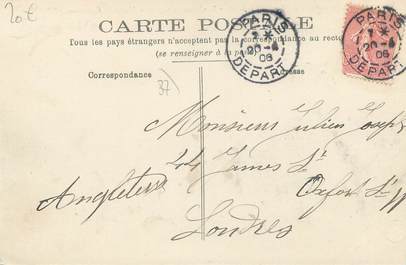 20 €
CARTE POSTALE
Tous les pays étrangers n'acceptent pas la correspondance au recto
(se renseigner à la p
Correspondance
Adresse
37)
PARIS
20
06
DEPART
PARIS
20
06
DEPART
Monsieur Julien Joseph
44 James St
Oxfort St
Angleterre
Londres